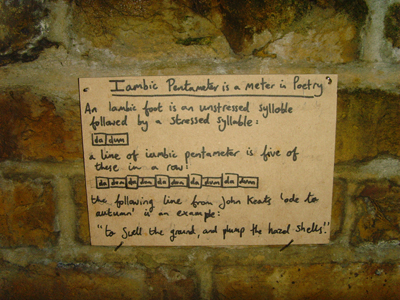 "Iambic Pentameter is a meter in Poetry"
An Iambic foot is an unstressed syllable
followed by a stressed syllable:
da dum
a line of iambic pentameter is five of
these in a row:
da dum da dum da dum da dum da dum
the following line from John Keats 'ode to
autumn' is an example:
"to swell the ground, and plump the hazel shells".